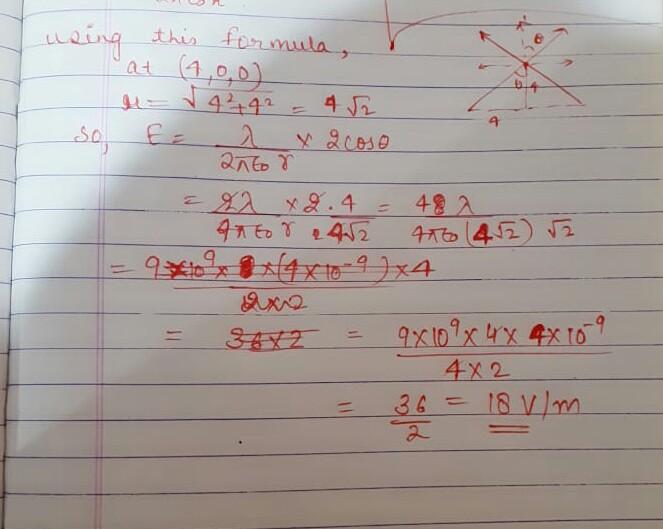 using this formula,
at (4,0,0)
r = √4²+4² = 4√2
so, E = λ/2πε₀r × 2cosθ
= 2λ/4πε₀r × 2·4/4√2 = 48λ/4πε₀(4√2)√2
= 9×10⁹×8×(4×10⁻⁹)×4/2×2
= 36×2 = 9×10⁹×4×4×10⁻⁹/4×2
= 36/2 = 18 V/m
θ
θ 4
4